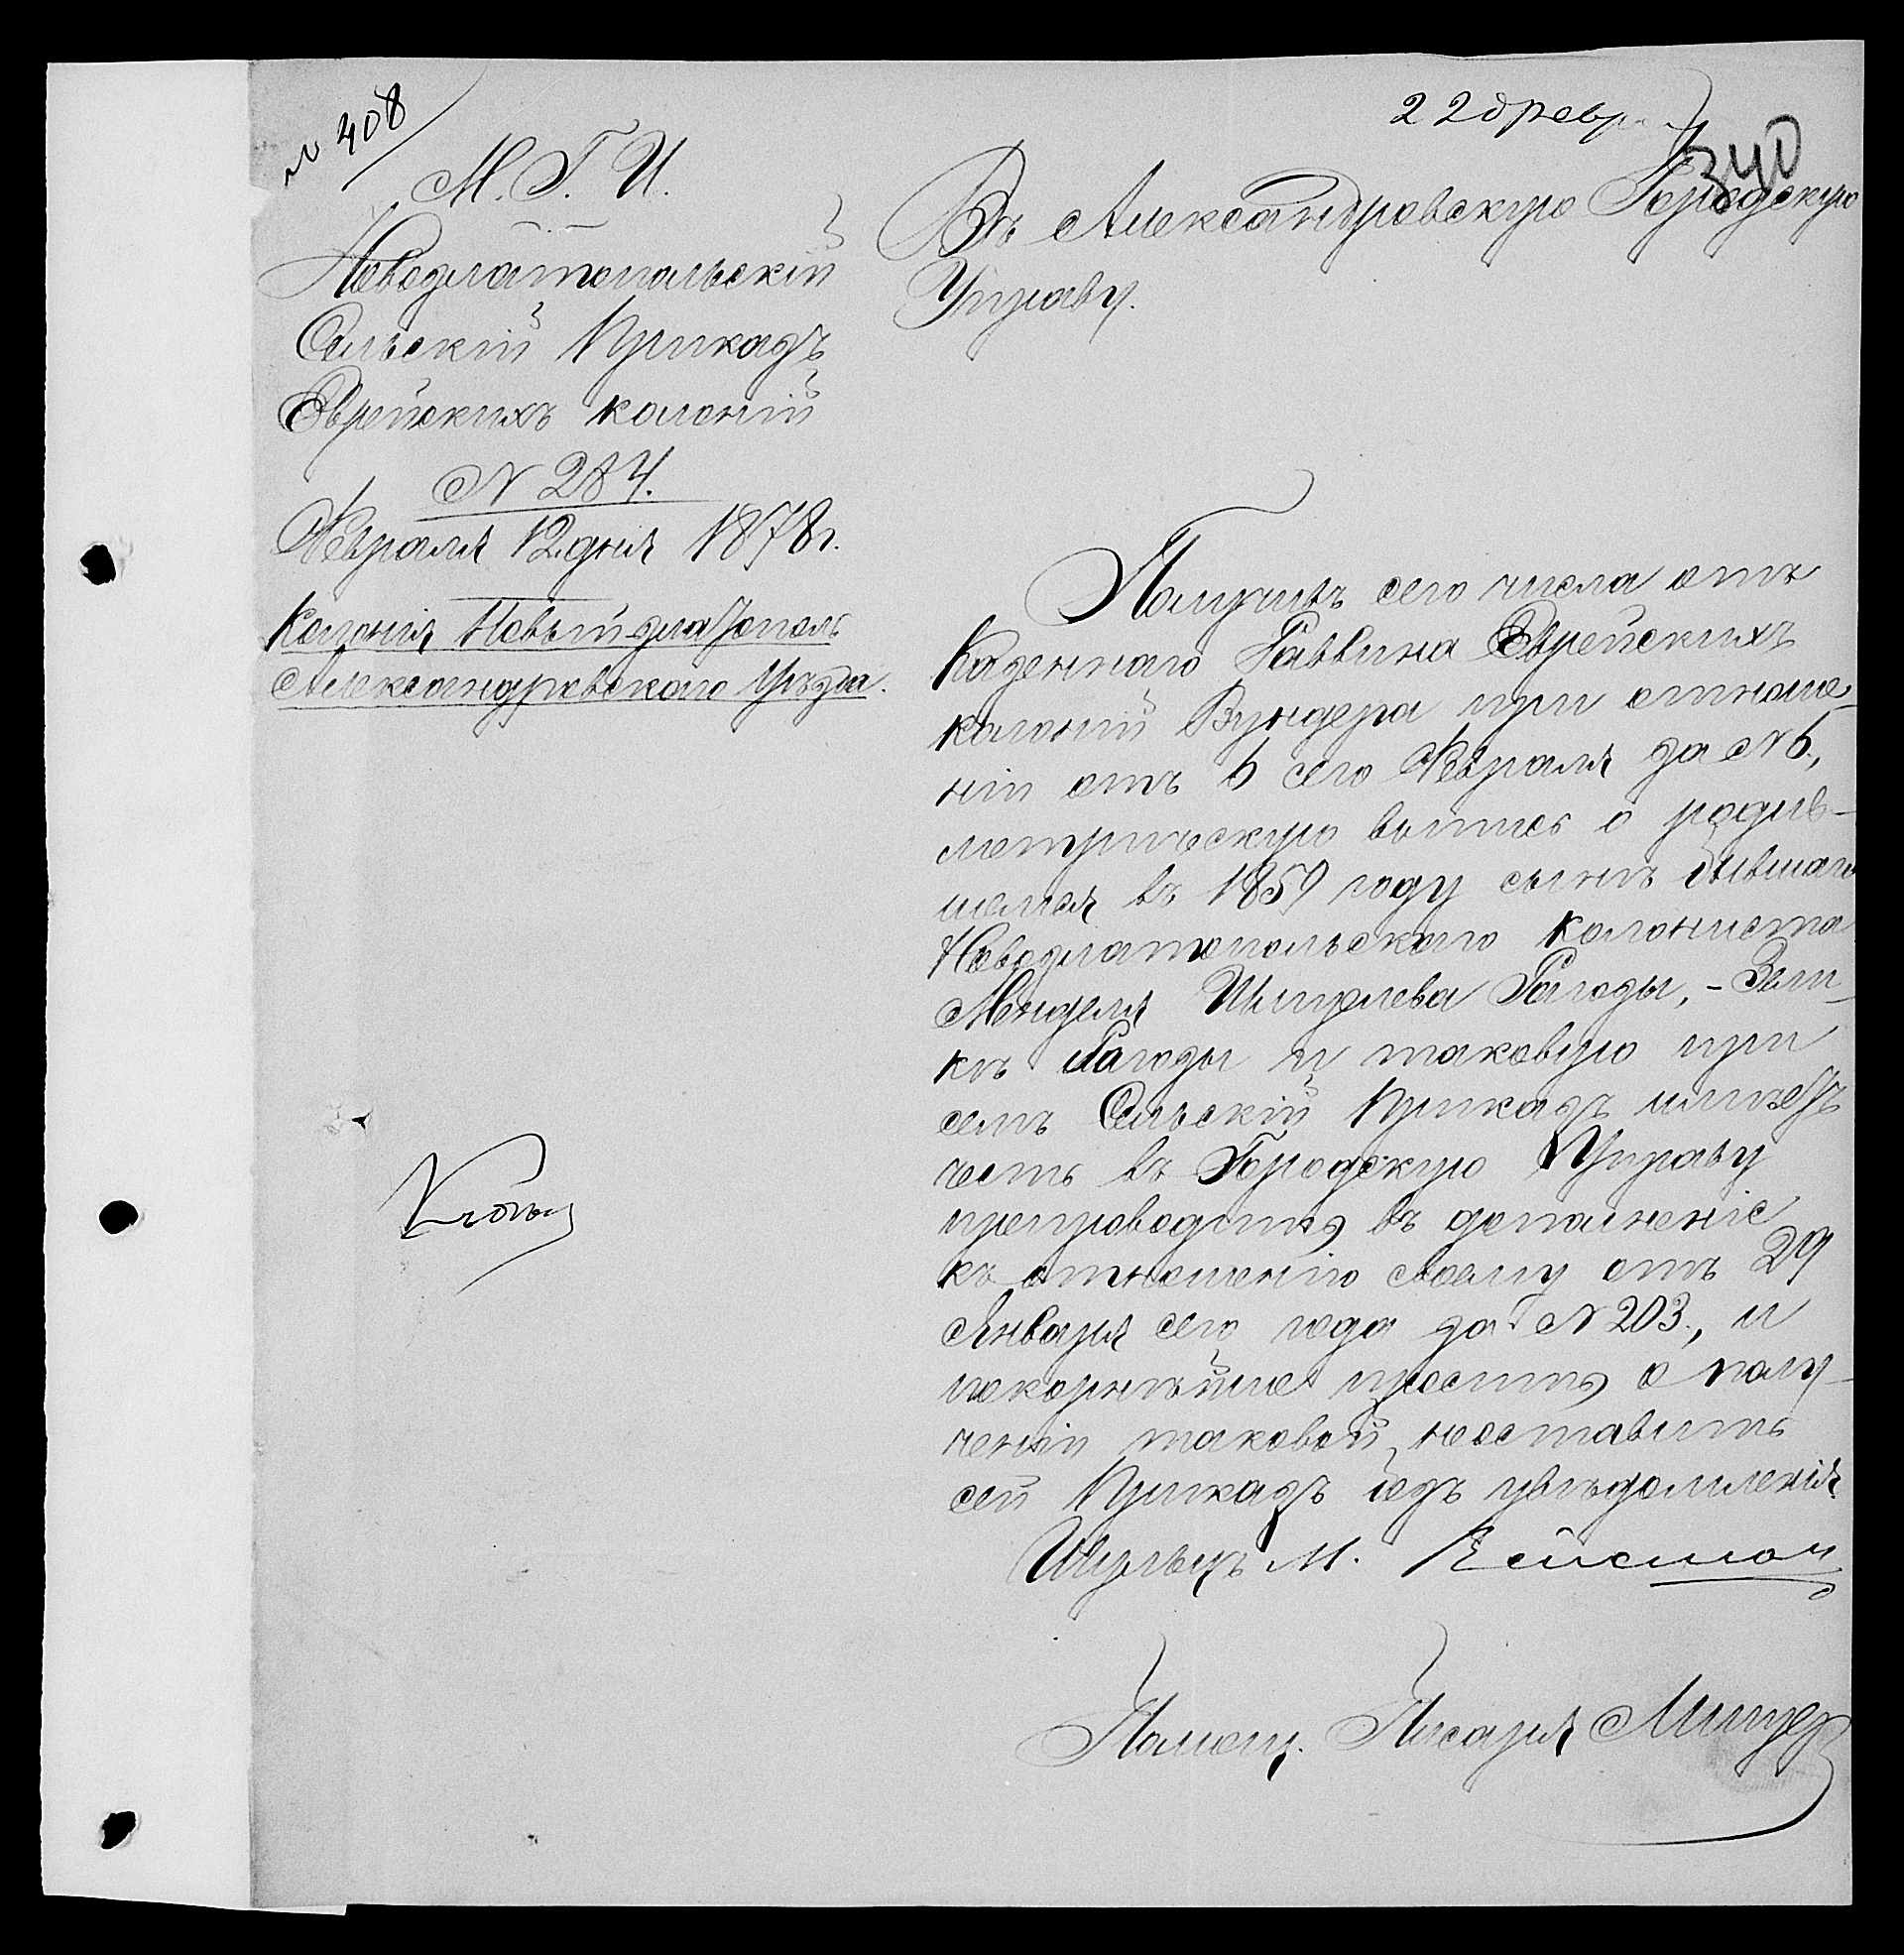 № 408
22 февр
340
М. Г. И.
Новозлатопольскій
Сельскій Приказъ
Еврейскихъ колоній
№ 284.
Февраля 12 дня 1878 г.
Колонія Новый-Златополь
Александровскаго Уѣзда.
Въ Александровскую Городскую
Управу.
Получивъ сего числа отъ
Казеннаго Раввина Еврейскихъ
колоній Вундера при отноше-
ніи отъ 6 сего Февраля за № 6.,
метрическую выпись о родив-
шемся въ 1859 году сынѣ бывшаго
Новозлатопольскаго колониста
Менделя Шмулева Рагозы, - Зели-
кѣ Рагозы и таковую при
семъ Сельскій Приказъ имѣетъ
честь въ Городскую Управу
препроводить въ дополненіе
къ отношенію своему отъ 29
Января сего года за № 203., и
покорнѣйше проситъ о полу-
ченіи таковой неоставить
сей Приказъ безъ увѣдомленія.
Шульцъ М.
Помощ. Писаря